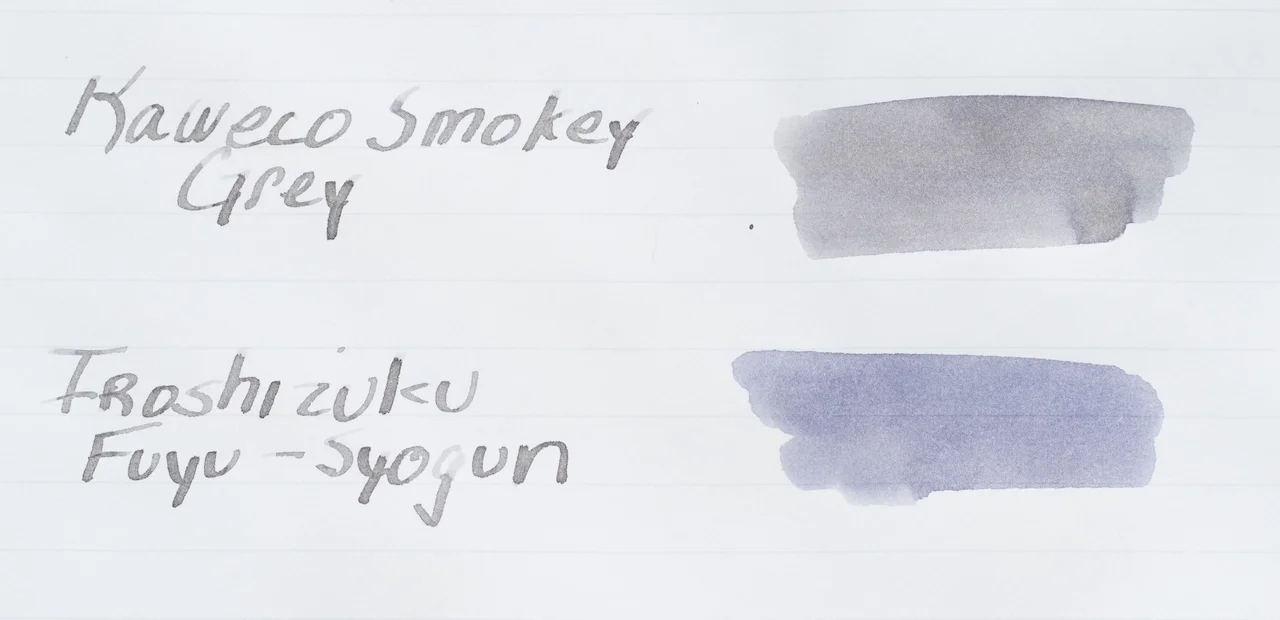 Kaweco Smokey
Grey
Iroshizuku
Fuyu-Syogun